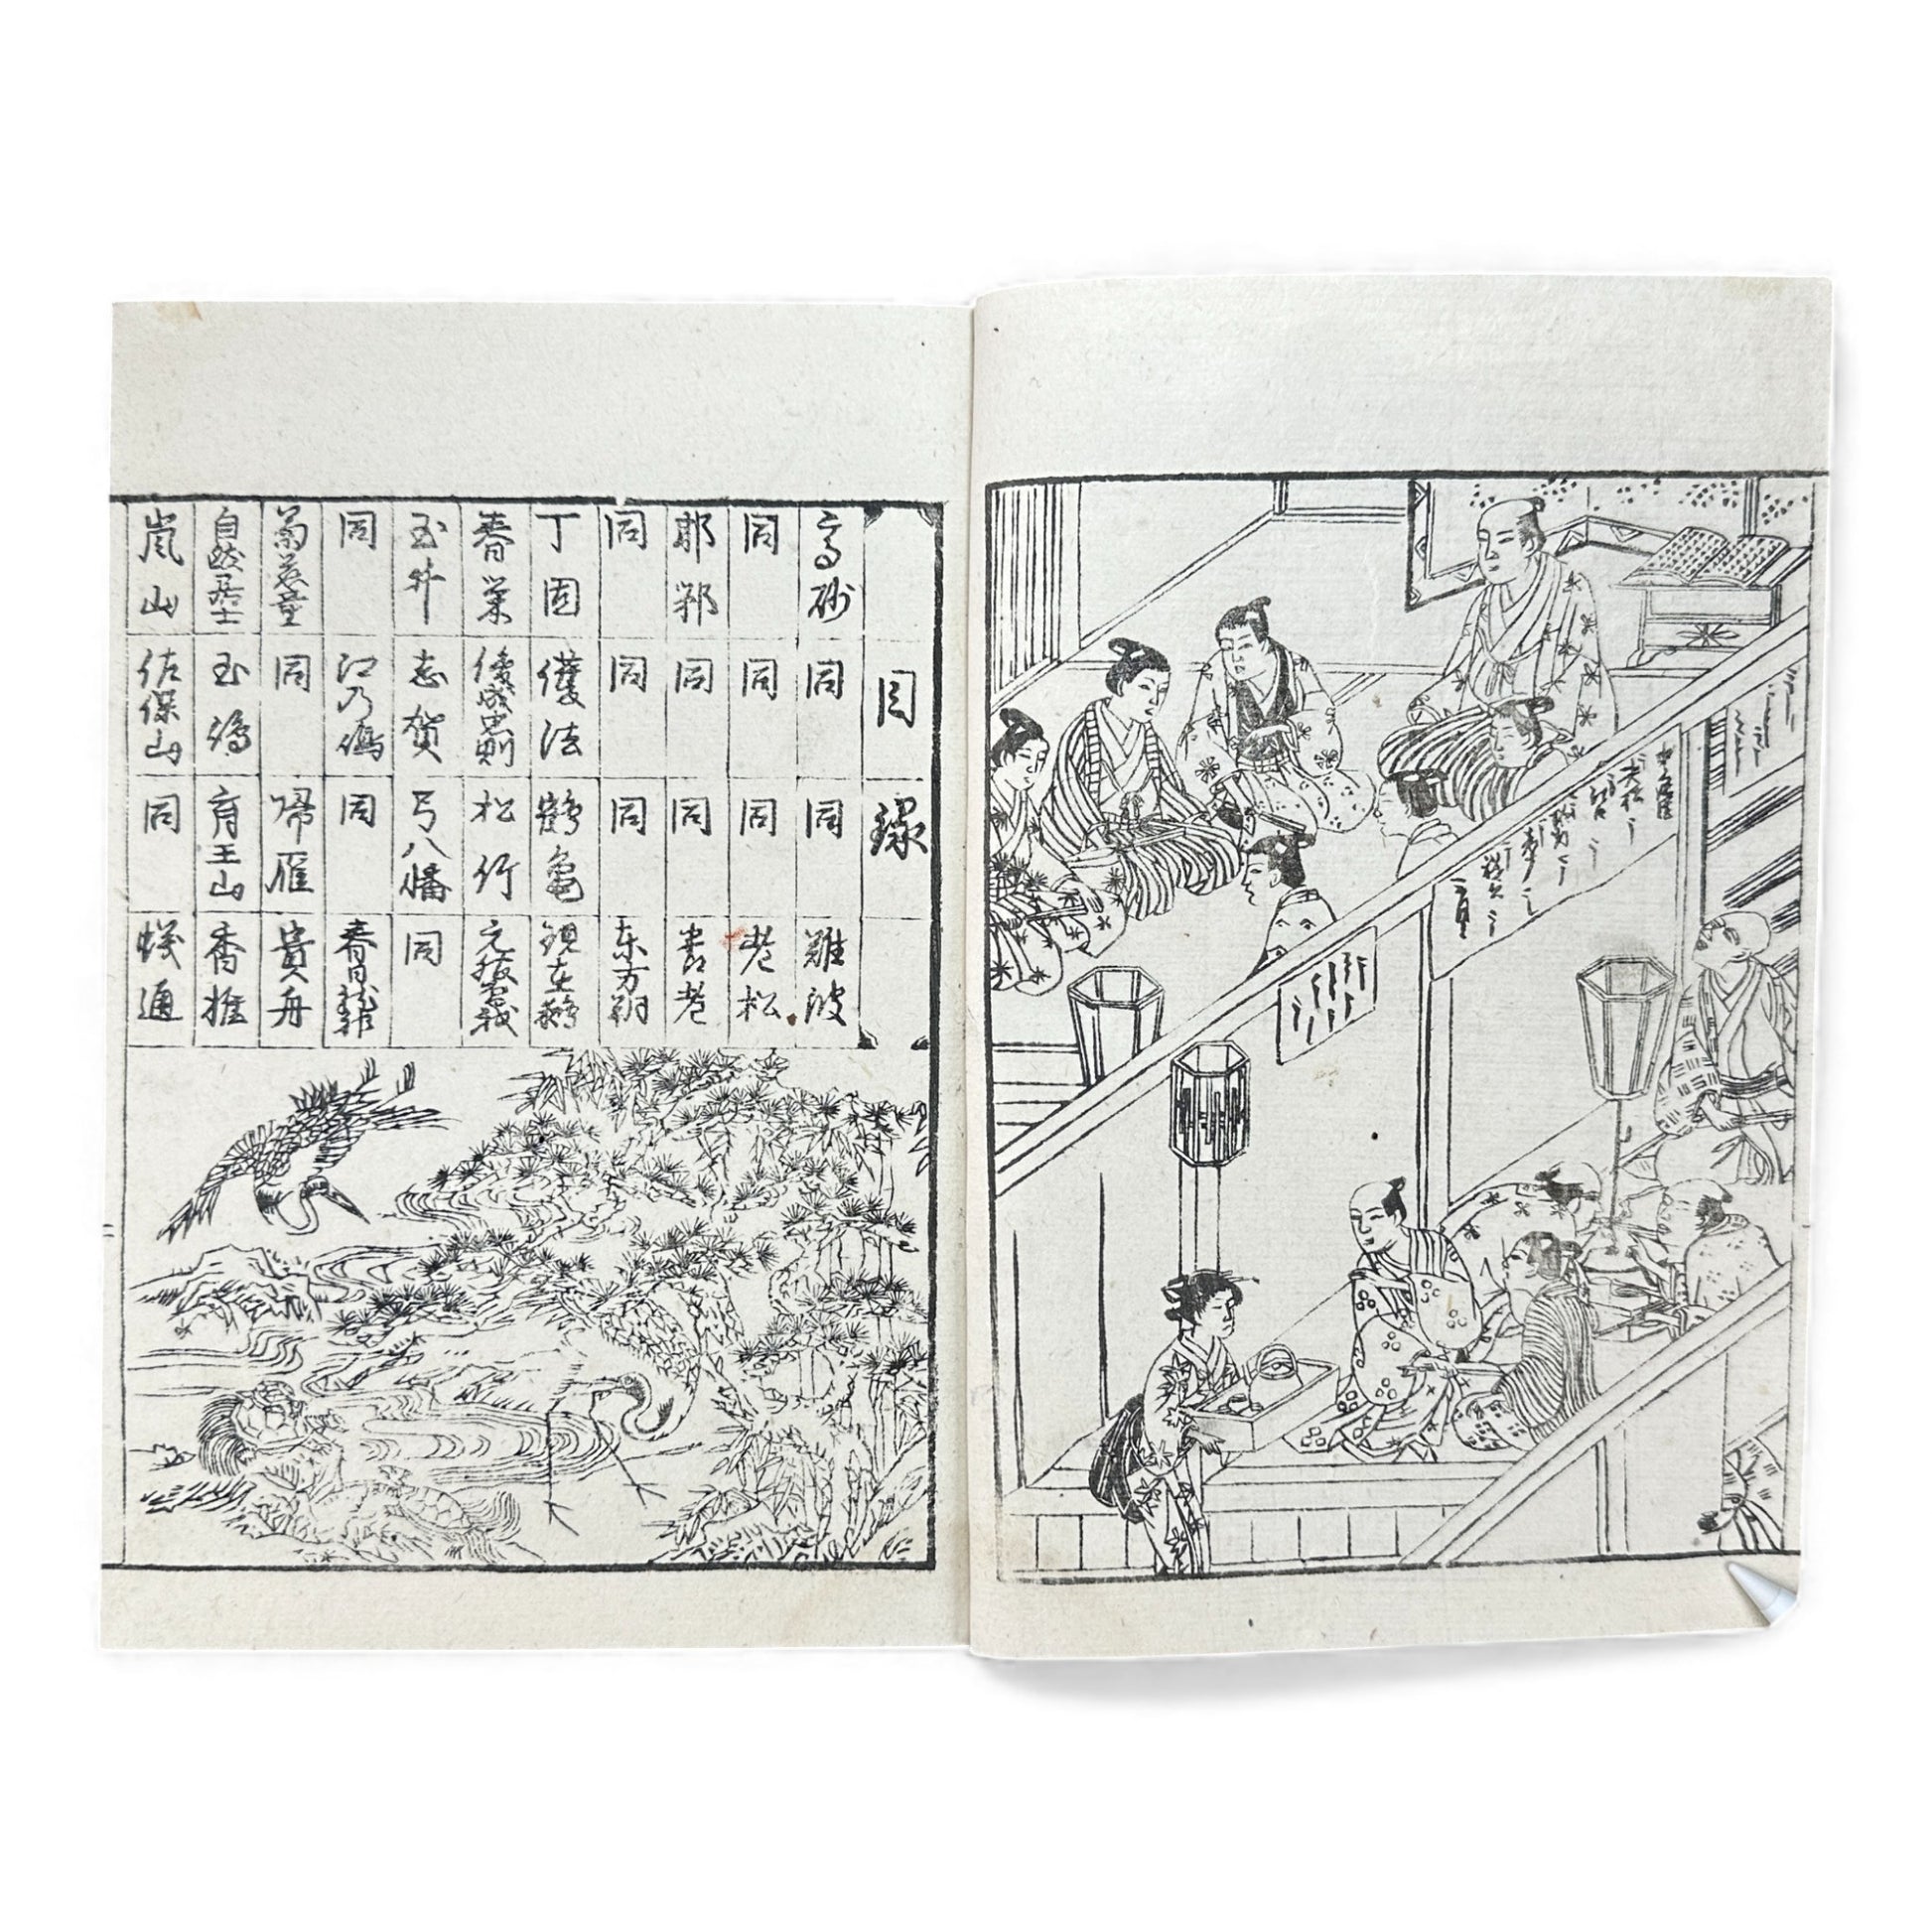 目録
高砂 同 同 難波
同 同 同 老松
邯鄲 同 同 養老
同 同 同 東方朔
丁固 護法 鶴亀 現在鵺
春栄 俊成忠則 松竹 元服曽我
玉井 志賀 弓八幡 同
同 江乃嶋 同 春日龍神
菊慈童 同 帰雁 貴舟
自然居士 玉嶋 育王山 香椎
嵐山 佐保山 同 蟻通